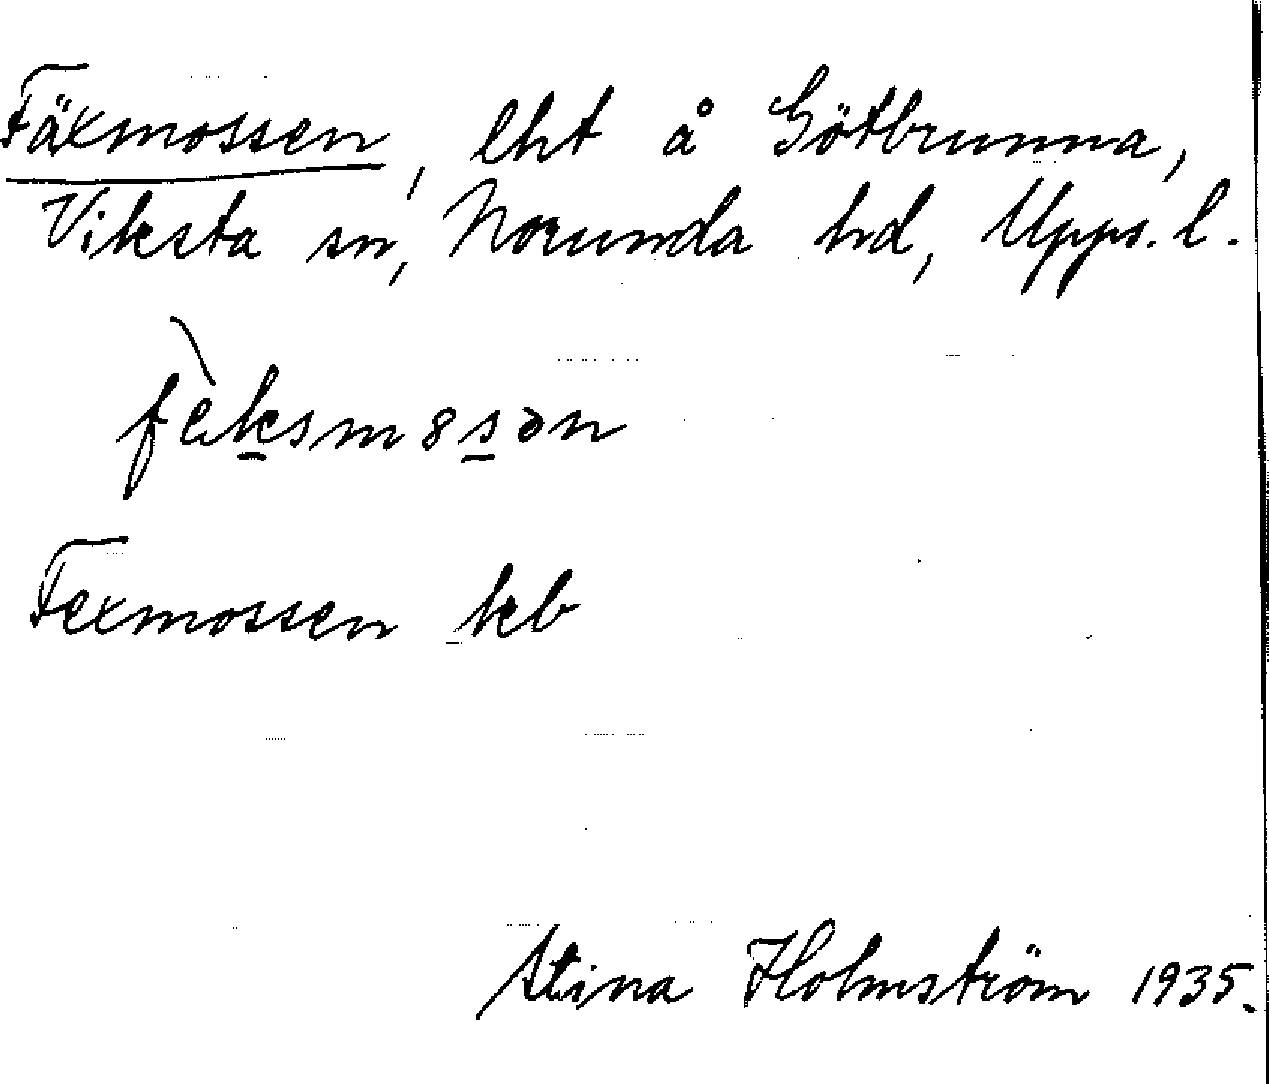 Fäxmossen, lht å Götbrunna,
Viksta sn, Norunda hd, Upps. l.
fèksm8sən
Fexmossen kb
Stina Holmström 1935.